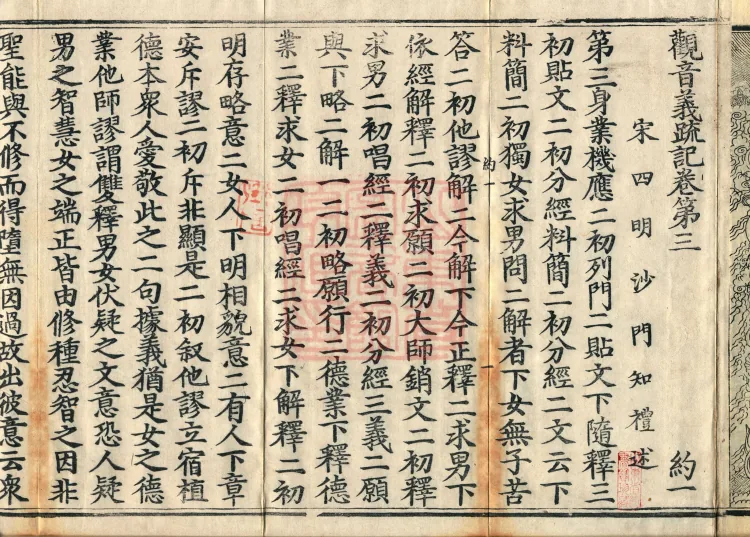 觀音義疏記卷第三 約一
宋四明沙門知禮述
第三身業機應二初列門二貼文下隨釋三
初貼文二初分經料簡二初分經二文云下
料簡二初獨女求男問二解者下女無子苦
約一
答二初他謬解二今解下今正釋二求男下
依經解釋二初求願二初大師銷文二初釋
求男二初唱經二釋義二初分經三義二願
與下略二解一二初略願行二德業下釋德
業二釋求女二初唱經二求女下解釋二初
明存略意二女人下明相貌意二有人下章
安斥謬二初斥非顯是二初叙他謬立宿植
德本衆人愛敬此之二句據義猶是女之德
業他師謬謂雙釋男女伏疑之文意恐人疑
男之智慧女之端正皆由修種忍智之因非
聖能與不修而得墮無因過故出彼意云衆